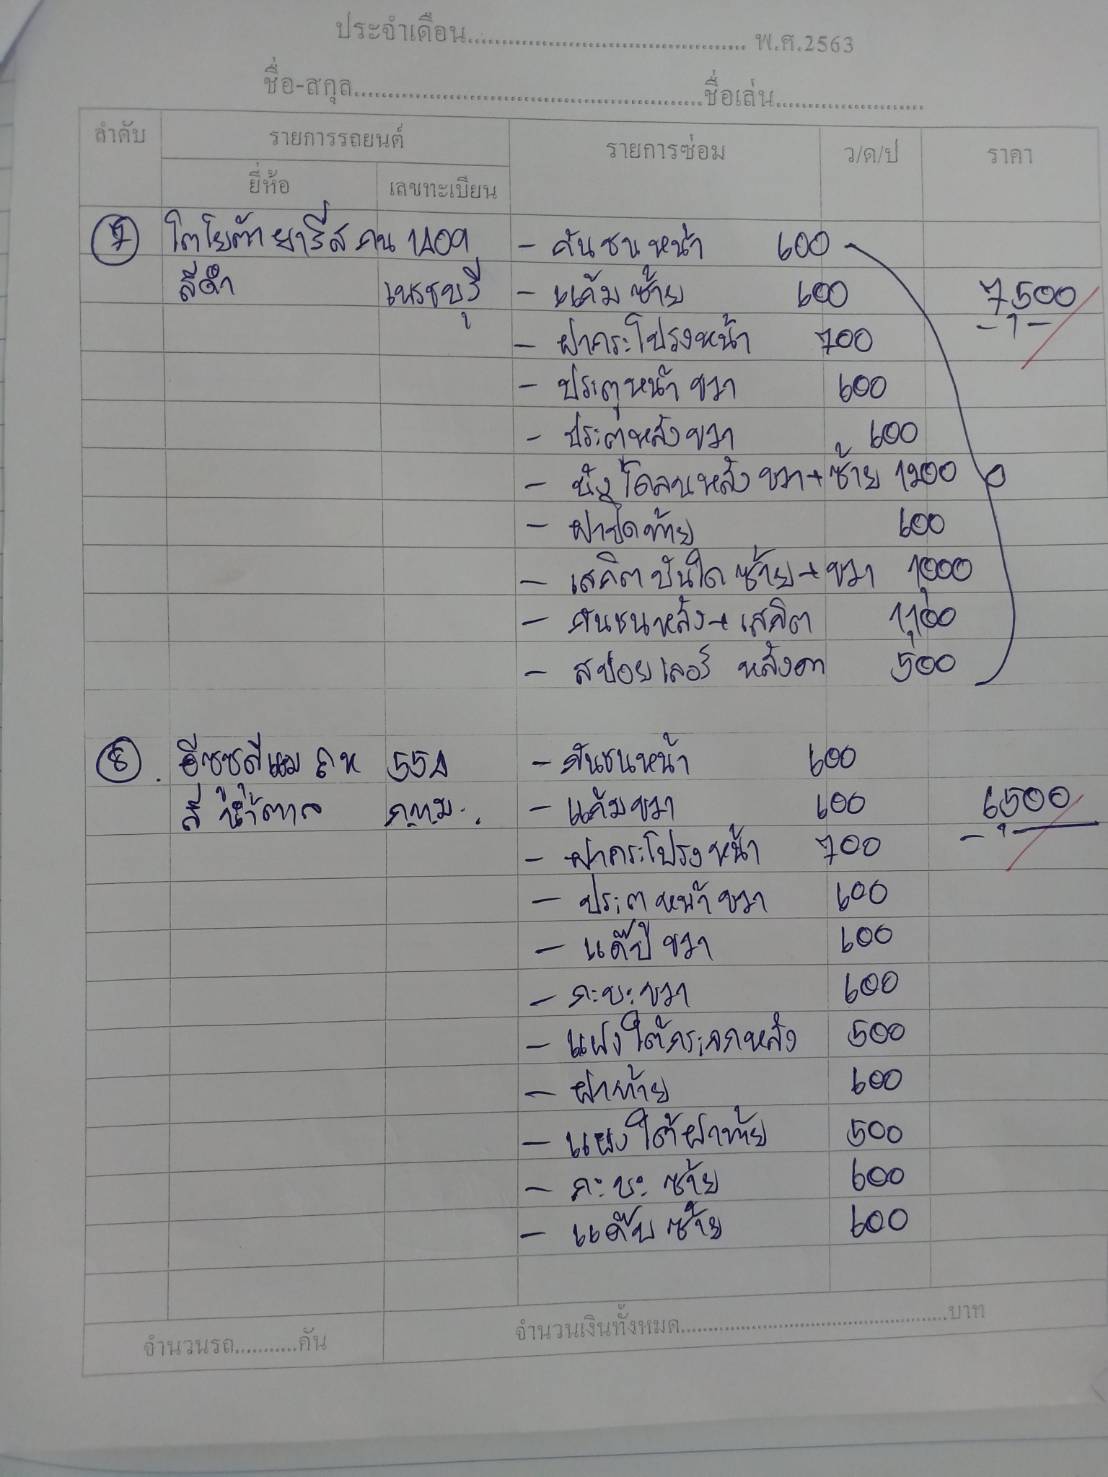 ประจำเดือน.............................................. พ.ศ.2563
ชื่อ-สกุล..........................................................ชื่อเล่น.........................
ลำดับ รายการรถยนต์ รายการซ่อม ว/ด/ป ราคา
ยี่ห้อ เลขทะเบียน
7 โตโยต้า ยารีส กน 1409 - กันชนหน้า 600
สีดำ เพรชบุรี - แก้มซ้าย 600 7,500
- ฝากระโปรงหน้า 700
- ประตูหน้า ขวา 600
- ประตูหลังขวา 600
- บังโคลนหลัง ขวา+ซ้าย 1200
- ฝาปิดท้าย 600
- เสกิตบันใด ซ้าย+ขวา 1000
- กันชนหลัง+เสกิต 1,100
- สปอยเลอร์ หลังคา 500
8. อีซูซุสีแมว ถห 554 - กันชนหน้า 600
สี น้ำตาล กทม. - แก้มขวา 600 6,500
- ฝากระโปรงหน้า 700
- ประตูหน้าขวา 600
- แค๊ป ขวา 600
- กะบะขวา 600
- แผงใต้กระจกหลัง 500
- ฝาท้าย 600
- แผงใต้ฝาท้าย 500
- กะบะ ซ้าย 600
- แค๊บซ้าย 600
จำนวนรถ...........คัน จำนวนเงินทั้งหมด..................................................บาท